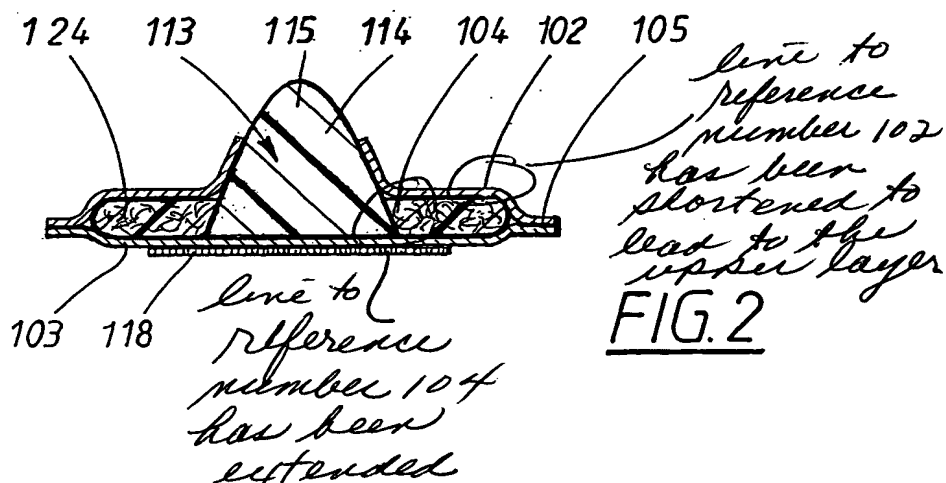 124 113 115 114 104 102 105
line to
reference
number 102
has been
shortened to
lead to the
upper layer
103 118
FIG. 2
line to
reference
number 104
has been
extended